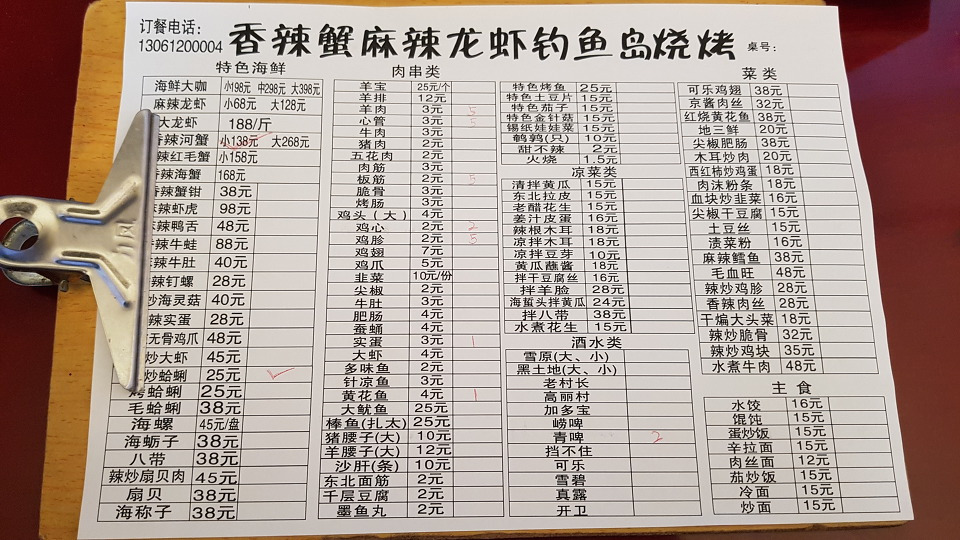 订餐电话:
13061200004
香辣蟹麻辣龙虾钓鱼岛烧烤
桌号:
特色海鲜
海鲜大咖 小198元 中298元 大398元
麻辣龙虾 小68元 大128元
大龙虾 188/斤
香辣河蟹 小138元 大268元
辣红毛蟹 小158元
香辣海蟹 168元
香辣蟹钳 38元
麻辣虾虎 98元
麻辣鸭舌 48元
香辣牛蛙 88元
麻辣牛肚 40元
辣钉螺 28元
炒海灵菇 40元
辣实蛋 28元
无骨鸡爪 48元
炒大虾 45元
炒蛤蜊 25元 ✓
烤蛤蜊 25元
毛蛤蜊 38元
海螺 45元/盘
海蛎子 38元
八带 38元
辣炒扇贝肉 45元
扇贝 38元
海称子 38元
肉串类
羊宝 25元/个
羊排 12元
羊肉 3元 5
心管 3元 5
牛肉 3元
猪肉 2元
五花肉 2元
肉筋 3元
板筋 2元 5
脆骨 3元
烤肠 3元
鸡头(大) 4元
鸡心 2元 2
鸡胗 2元 5
鸡翅 7元
鸡爪 5元
韭菜 10元/份
尖椒 2元
牛肚 3元
肥肠 4元
蚕蛹 4元
实蛋 3元 1
大虾 4元
多味鱼 2元
针凉鱼 3元
黄花鱼 4元 1
大鱿鱼 25元
棒鱼(扎太) 25元
猪腰子(大) 10元
羊腰子(大) 12元
沙肝(条) 10元
东北面筋 2元
千层豆腐 2元
墨鱼丸 2元
特色烤鱼 25元
特色土豆片 15元
特色茄子 15元
特色金针菇 15元
锡纸娃娃菜 15元
鹌鹑(只) 10元
甜不辣 2元
火烧 1.5元
凉菜类
清拌黄瓜 15元
东北拉皮 15元
老醋花生 15元
姜汁皮蛋 16元
辣根木耳 18元
凉拌木耳 18元
凉拌豆芽 10元
黄瓜蘸酱 18元
拌干豆腐丝 16元
拌羊脸 28元
海蜇头拌黄瓜 24元
拌八带 38元
水煮花生 15元
酒水类
雪原(大、小)
黑土地(大、小)
老村长
高丽村
加多宝
崂啤
青啤 2
挡不住
可乐
雪碧
真露
开卫
菜类
可乐鸡翅 38元
京酱肉丝 32元
红烧黄花鱼 38元
地三鲜 20元
尖椒肥肠 38元
木耳炒肉 20元
西红柿炒鸡蛋 18元
肉沫粉条 18元
血块炒韭菜 16元
尖椒干豆腐 15元
土豆丝 15元
渍菜粉 16元
麻辣鳕鱼 38元
毛血旺 48元
辣炒鸡胗 28元
香辣肉丝 28元
干煸大头菜 18元
辣炒脆骨 32元
辣炒鸡块 35元
水煮牛肉 48元
主食
水饺 16元
馄饨 15元
蛋炒饭 15元
辛拉面 15元
肉丝面 12元
茄炒饭 15元
冷面 15元
炒面 15元